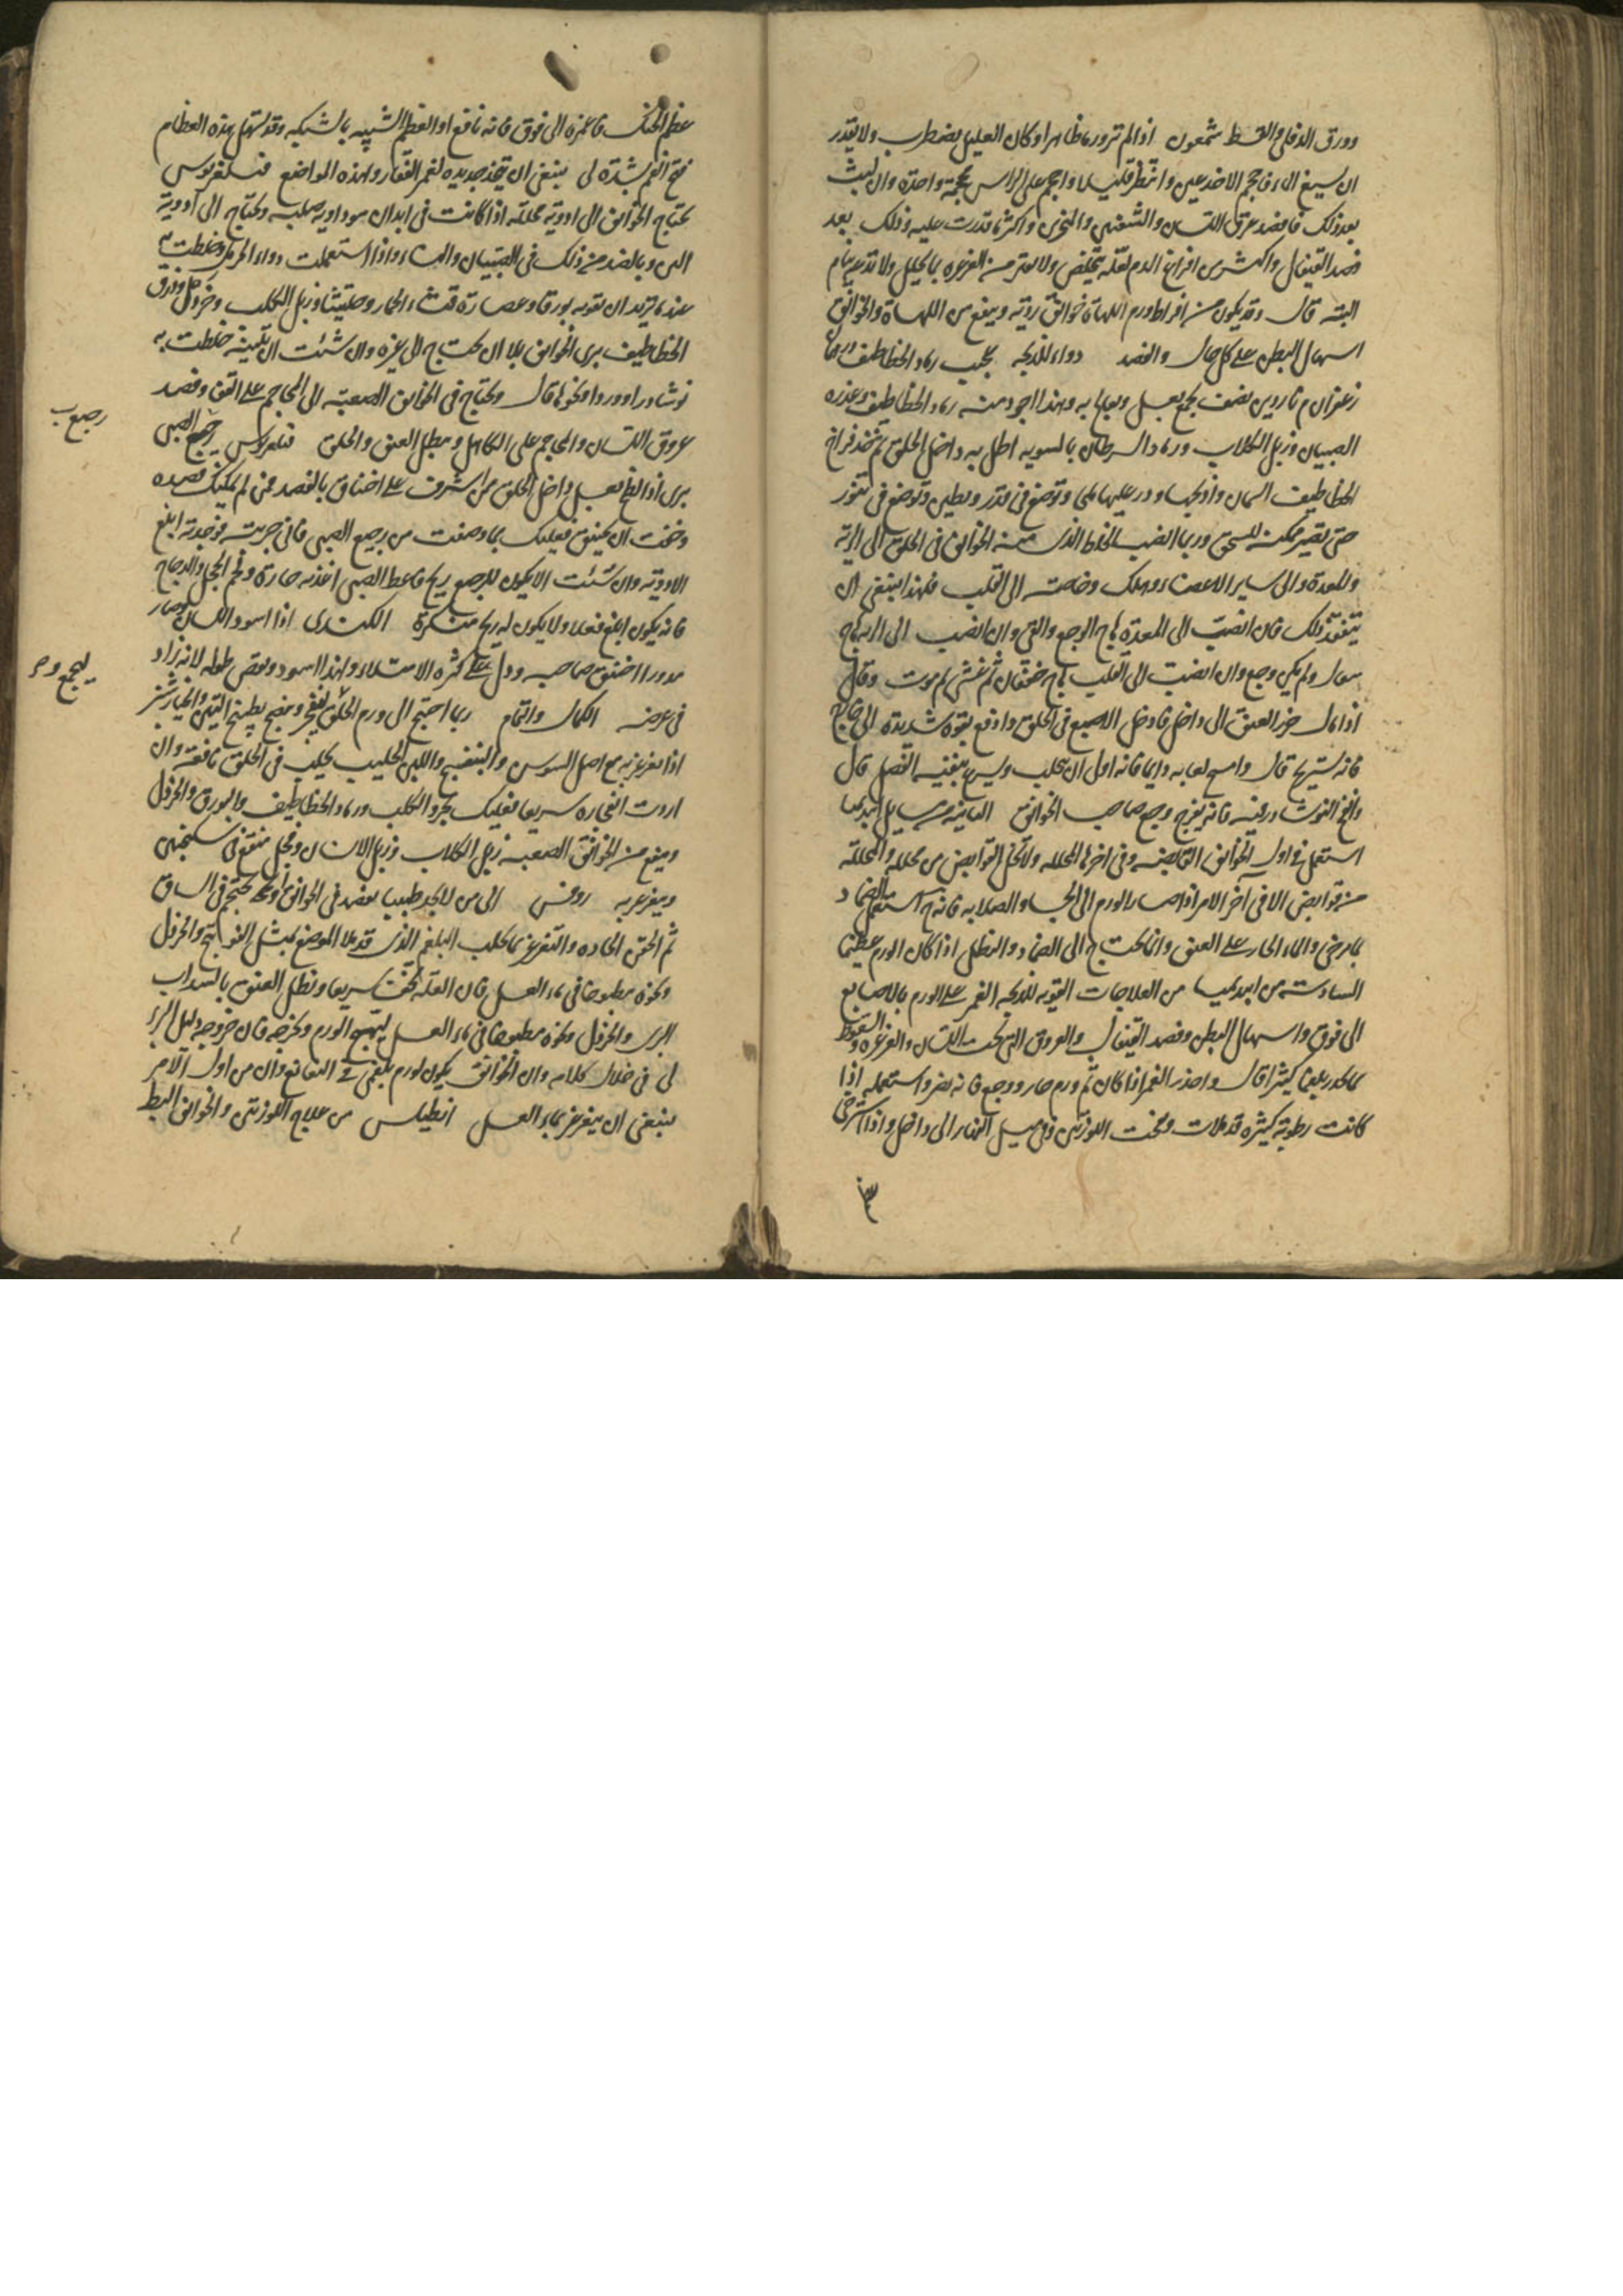 وورق الدفلى والقسط شمعون اذا لم تر ورما ظاهرا وكان العليل يضطرب ولا يقدر
ان يسيغ الماء فاحجم الاخدعين وانتظر قليلا واحجم على الراس محجمة واحدة وان لبث
بعد ذلك فافصد عرق اللسان والشفتين والمنخرين واكثر ما قدرت عليه وذلك بعد
فصد القيفال واكثر من اخراج الدم لعله يتخلص ولا تفتر من الغرغره بما يحلل ولا تدعه ينام
البتة قال وقد يكون من افراط ورم اللهاة خوانيق رديه وينفع من اللهاة والخوانيق
اسهال البطن على كل حال والفصد دواء للذبحه عجيب رماد الخطاطيف
زعفران م ناردين نصف يجمع بعسل ويعالج به وهذا اجود منه رماد الخطاطيف وعذره
الصبيان وزبل الكلاب ورماد السرطان بالسويه اطل به داخل الحلق ثم تتخذ فراخ
الخطاطيف السمان واذبحها وذر عليها ملحا وتوضع في قدر ويطين وتوضع في تنور
حتى تصير ممكنة للسحق وربما انصب الخلط الذي منه الخوانيق في الحلق الى الرية
والمعدة والى ساير الاعضاء ويهلك وخاصة الى القلب فلهذا ينبغي ان
يتفقد ذلك فان انصب الى المعدة هاج الوجع والقي وان انصب الى الريه هاج
سعال ولم يكن وجع وان انصب الى القلب هاج خفقان ثم غشي ثم موت وقال
اذا مال خرز العنق الى داخل فادخل الاصبع في الحلق وادفع بقوة شديدة الى خارج
فانه يستريح قال وامسح لعابه دايما فانه اولى ان يجلب وليس بنفسه الفصل قال
وانفخ النوشادر فيه فانه يفرج وجع صاحب الخوانيق الثانية من مسايل ابيديميا
استعمل في اول الخوانيق القابضه وفي اخرها المحلله ولا تخل القوابض من محلله والمحللة
من قوابض الا في اخر الامر اذا صار الورم الى الجساء والصلابه فانه استعمل الضماد
بما يرخي والماء الحار على العنق وانما يحتاج الى الضماد والنطل اذا كان الورم عظيما
السادسة من ابيديميا من العلاجات القويه للذبحه الغمز على الورم بالاصابع
الى فوق واسهال البطن وفصد القيفال والعروق التي تحت اللسان والغرغره والسعوط
مما يحدر بلغما كثيرا قال واحذر الغمز اذا كان ثم ورم حار ووجع فانه يضر واستعمله اذا
كانت رطوبة كثيرة قد ملات ومخت اللوزتين وفي ميل الفقار الى داخل واذا استرخى
عظم الحنك فاغمزه الى فوق فانه نافع او العظم الشبيه بالشبكه وقد تنتقل هذه العظام
فتح الفم بشدة لى ينبغي ان تتخذ حديده لغمز الفقار ولهذه المواضع فيلغريوس
تحتاج الخوانيق الى ادوية محللة اذا كانت في ابدان سوداويه صلبه وتحتاج الى ادوية
الين وبالضد من ذلك في الصبيان والنساء واذا استعملت دواء الحرمل وخلطت به
عندما تريد ان تقويه بورقا وعصارة قثاء الحمار وحلتيتا وزبل الكلب وخردل وورق
الخطاطيف يبرى الخوانيق بلا ان تحتاج الى غيره وان شئت ان تلينه خلطت به
نوشادرا ووردا ونحوها قال وتحتاج في الخوانيق الصعبة الى المحاجم على القفا وفصد
عروق اللسان والمحاجم على الكاهل وينطل العنق والحلق فيلغريوس رجيع الصبي
يبرى اذا لطخ بعسل داخل الحلق من اشرف على اختناق بالفصد فمن لم يمكنك فصده
وخفت ان يختنق فعليك بما وصفت من رجيع الصبي فاني جربته فوجدته ابلغ
الادوية وان شئت الا يكون للرجيع ريح فاعط الصبي اغذيه حارة ولحم الحجل والدجاج
فانه يكون ابلغ فعلا ولا يكون له ريح منكرة الكندي اذا اسود اللسان وصار
مدورا اختنق صاحبه ودل على كثره الامتلاء ولهذا اسود ونقص طوله لانه زاد
في عرضه الكمال والتمام ربما احتيج الى ورم الحلق لتفجر ونضج بطبيخ التين والخيارشنبر
اذا تغرغر به مع اصل السوس والبنفسج واللبن الحليب يحلب في الحلق نافعة وان
اردت انفجاره سريعا فعليك بخرو الكلب ورماد الخطاطيف والبورق والخردل
وينفع من الخوانيق الصعبه زبل الكلاب وزبل الانسان وفجل منقع في سكنجبين
ويتغرغر به روفس الى من لا يجد طبيبا يفصد في الخوانيق او يحتجم في الساق
ثم الحقن الحاده والتغرغر بما يحلب البلغم الذي قد ملا الموضع بمثل الفوذنج والخردل
ونحوه مطبوخا في ماء العسل فان العله تخف سريعا وينطل العنق بالسداب
البري والخردل ونحوه مطبوخا في ماء العسل ليتهيج الورم ويخرجه فان خروجه دليل البرء
لى في خلال كلامه وان الخوانيق يكون لورم بلغمي في النغانغ وان من اول الامر
ينبغي ان يتغرغر بماء العسل انطيلس من علاج اللوزتين والخوانيق البط
رجيع